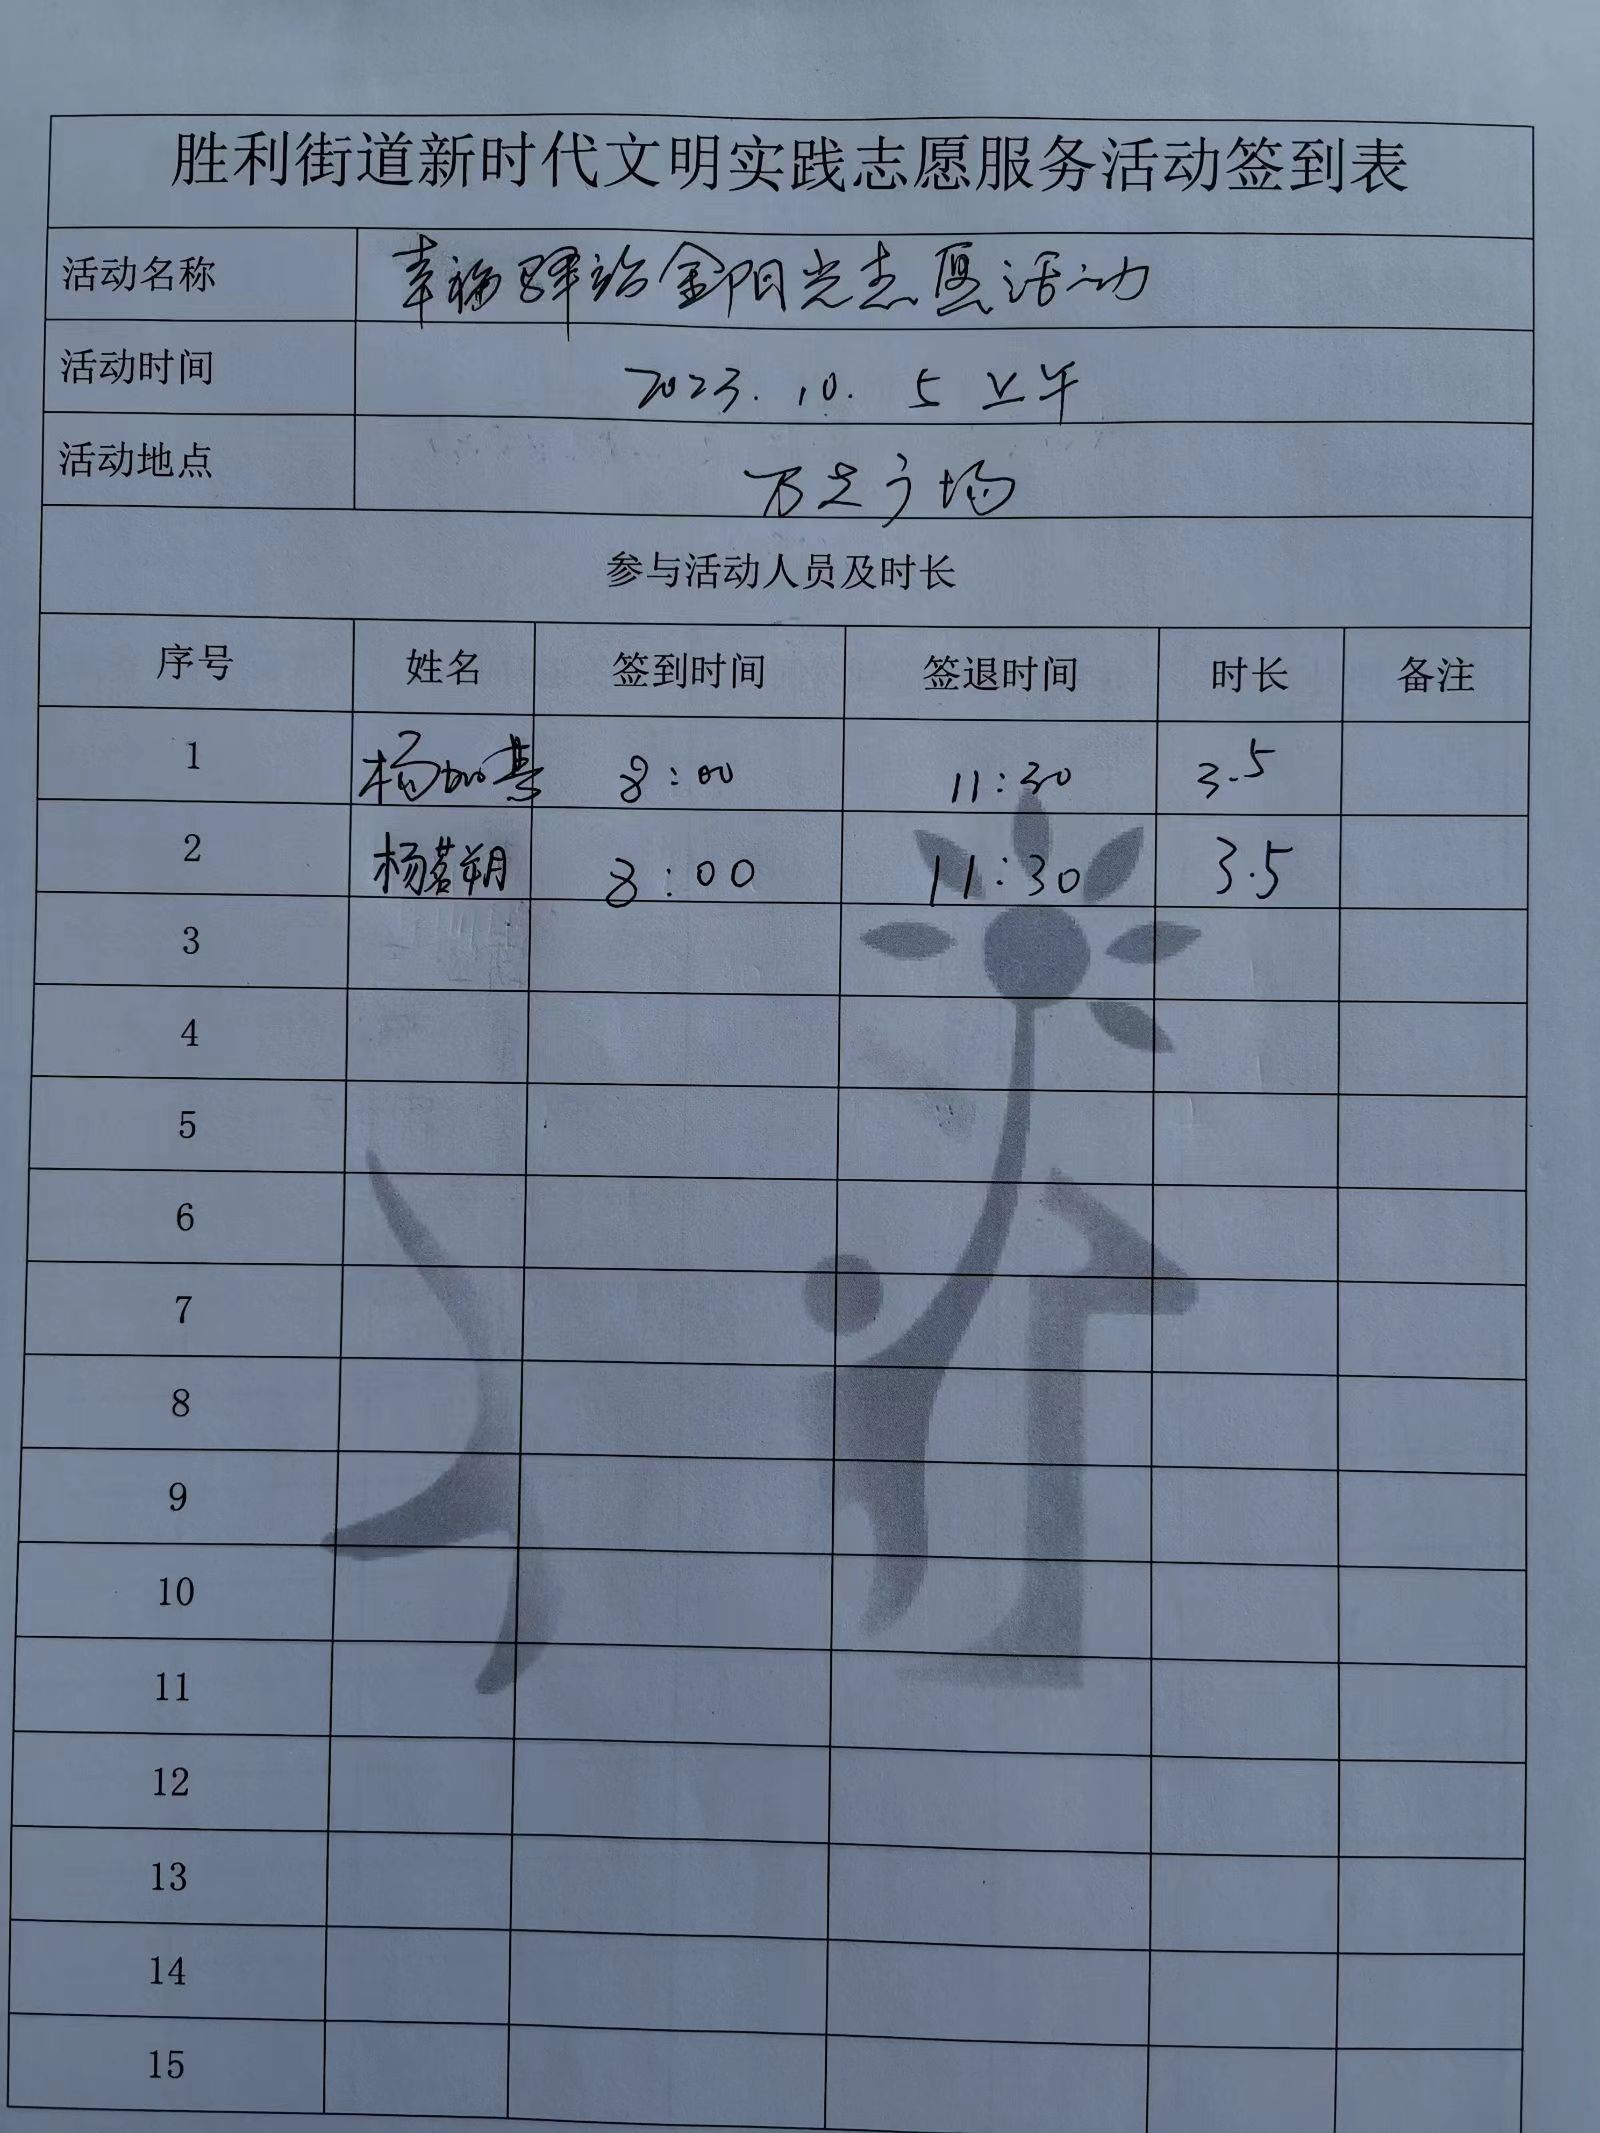 胜利街道新时代文明实践志愿服务活动签到表
活动名称 幸福驿站金阳光志愿活动
活动时间 2023.10.5 上午
活动地点 万达广场
参与活动人员及时长
序号 姓名 签到时间 签退时间 时长 备注
1 杨 8:00 11:30 3.5
2 杨茗朔 8:00 11:30 3.5
3
4
5
6
7
8
9
10
11
12
13
14
15